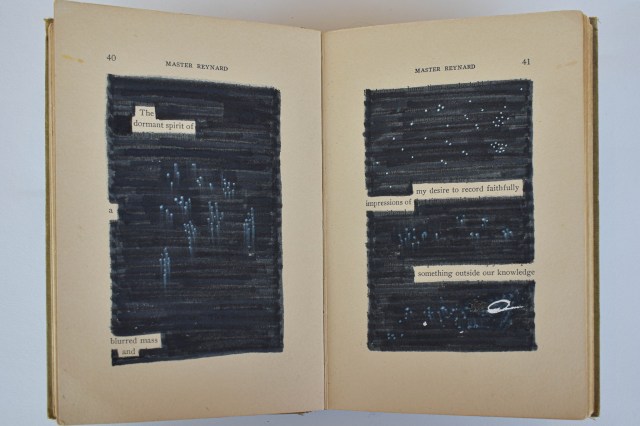 40
MASTER REYNARD
The
dormant spirit of
a
blurred mass
and
MASTER REYNARD
41
my desire to record faithfully
impressions of
something outside our knowledge